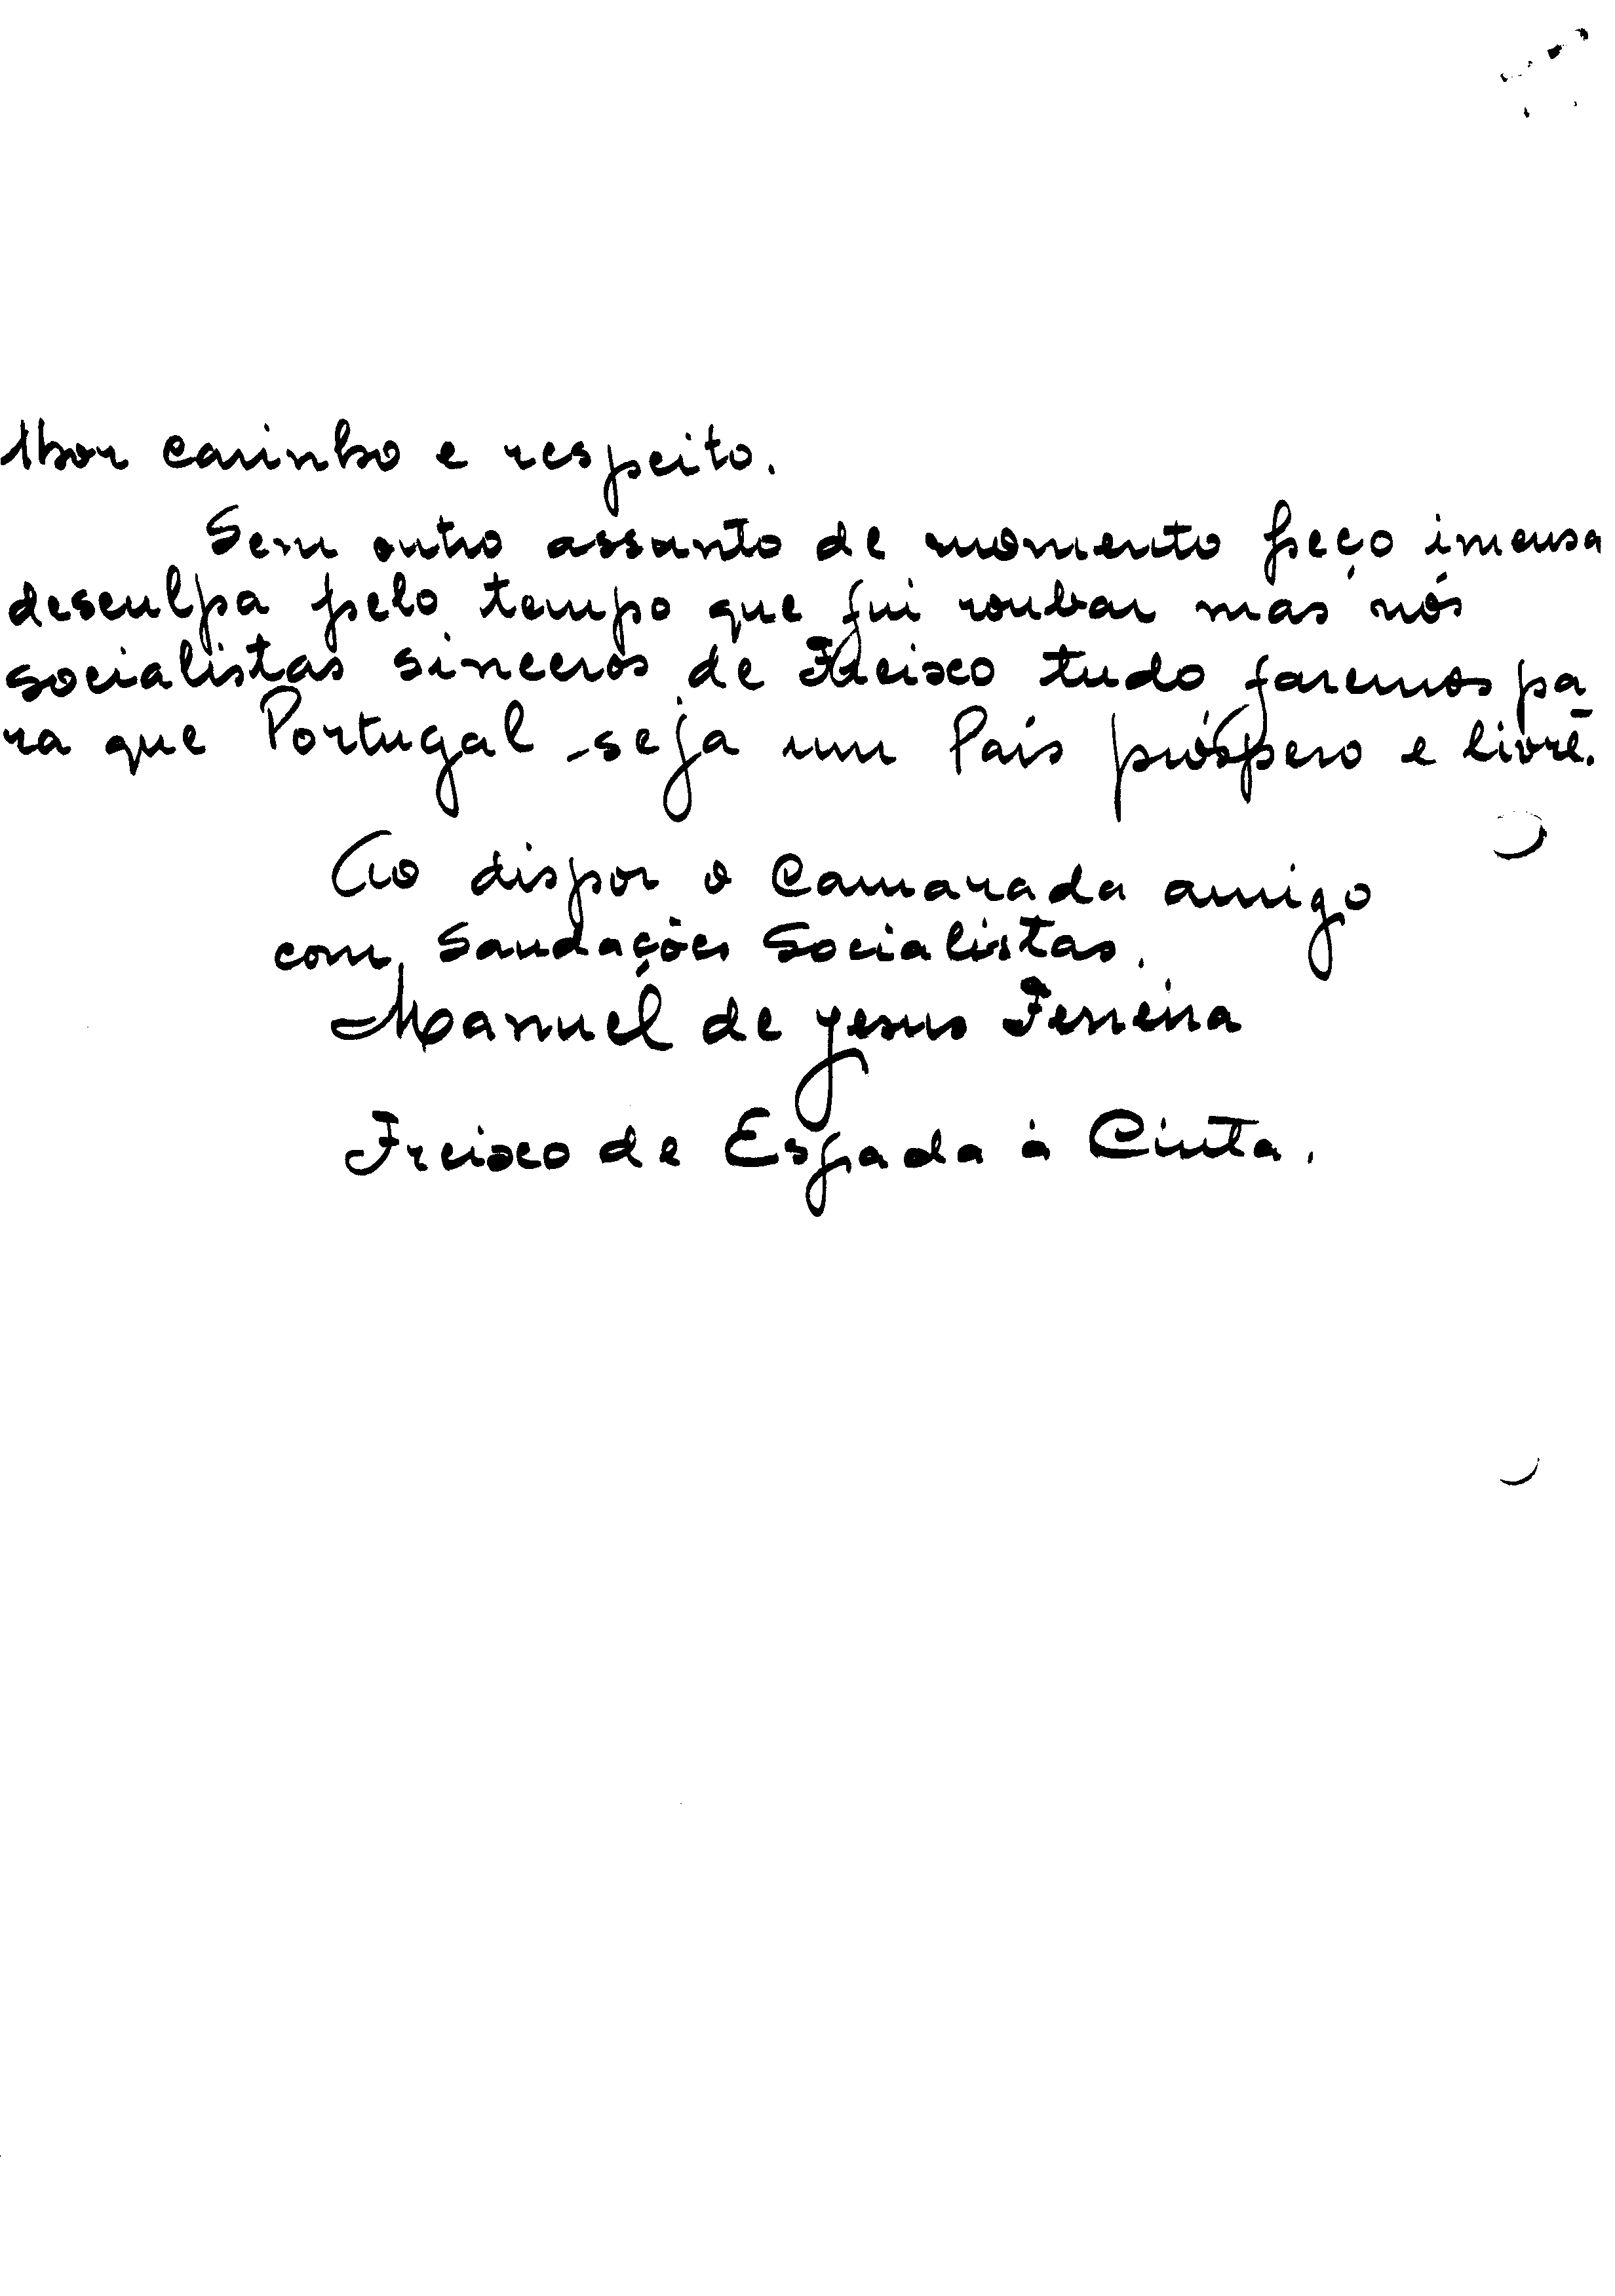 lhor carinho e respeito.
Sem outro assunto de momento peço imensa
desculpa pelo tempo que fui roubar mas nós
socialistas sinceros de Freixo tudo faremos pa
ra que Portugal seja um País próspero e livre.
Ao dispor o Camarada amigo
com Saudações Socialistas.
Manuel de Jesus Ferreira
Freixo de Espada à Cinta.